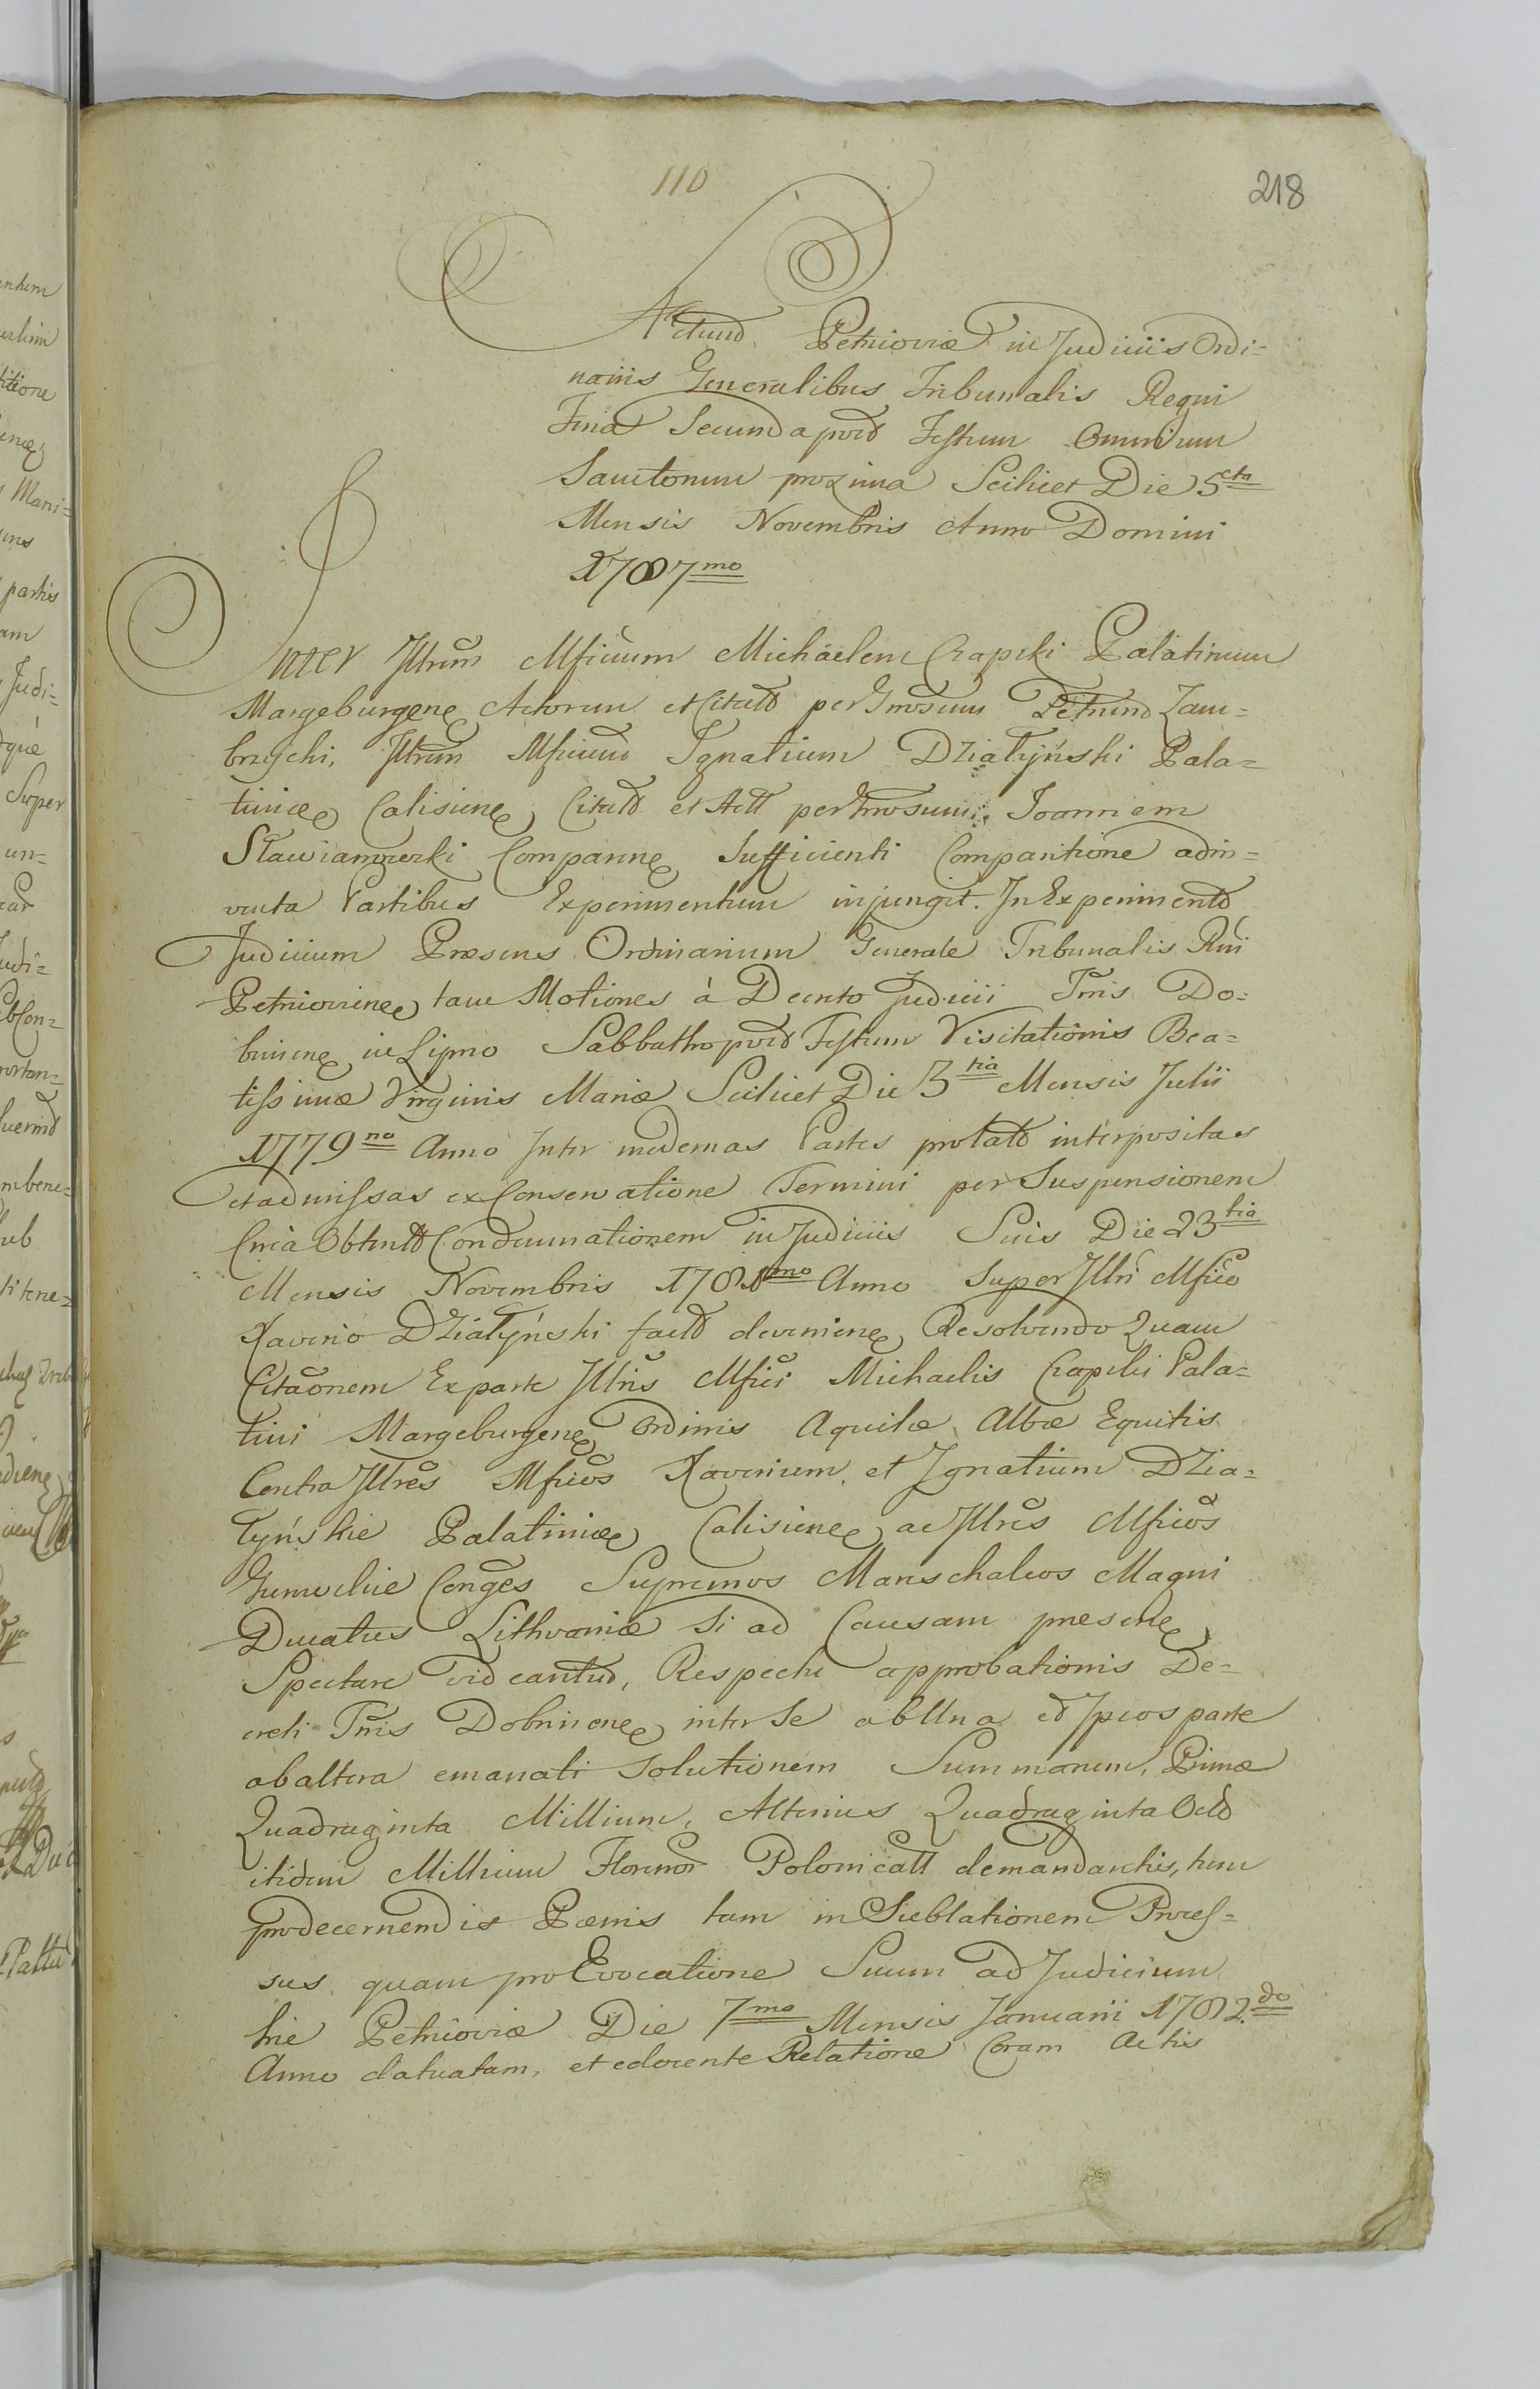 110
218
Actum Petricoviæ in Judiciis Ordi=
nariis Generalibus Tribunalis Regni
Feria Secunda post Festum Omnium
Sanctorum proxima Scilicet Die 5cta
Mensis Novembris Anno Domini
1787mo
Inter Illrem Mficum Michaelem Czapski Palatinum
Margeburgene Actorum et Citatt per Gnrosum Petrum Zam=
brzycki, Illrem Mficum Ignatium Działyński Pala=
tinice Calisiene Citatt et Actt per Gnrosum Joannem
Sławianowski Comparine Sufficienti Comparitione adin=
venta Partibus Experimentum injungit. In Experimento
Judicium Præsens Ordinarium Generale Tribunalis Rni
Petricoviene tam Motiones à Decreto Judicii Tris Do=
briniene in Lipno Sabbatho post Festum Visitationis Bea=
tissimæ Virginis Mariæ Scilicet Die 3tia Mensis Julii
1779no Anno Inter modernas Partes prolato interpositas
et admissas ex Conservatione Termini per Suspensionem
Circa Obtentt Condemnationem in Judiciis Suis Die 23tia
Mensis Novembris 1781mo Anno Super Illri Mfico
Xaverio Działyński facto deveniene Resolvendo Quam
Citaonem Ex parte Illris Mfici Michaelis Czapski Pala=
tini Margeburgene Ordinis Aquilæ Albæ Equitis
Contra Illres Mficos Xaverium et Ignatium Dzia=
łyńskie Palatinice Calisiene ac Illres Mficos
Gurowskie Conges Supremos Marschalcos Magni
Ducatus Lithvaniæ Si ad Causam presente
Spectare videantur, Respectu approbationis De=
creti Tris Dobriniene inter Se ab Una et Ipsos parte
ab altera emanati Solutionem Summarum, Primæ
Quadraginta Millium, Alterius Quadraginta Octo
itidem Millium Florenor Polonicall demandantis, tum
pro decernendis Pœnis tam in Sublationem Proces=
sus quam pro Evocatione Suum ad Judicium
hic Petricoviæ Die 7ma Mensis Januarii 1782do
Anno datuatam, et edocente Relatione Coram Actis